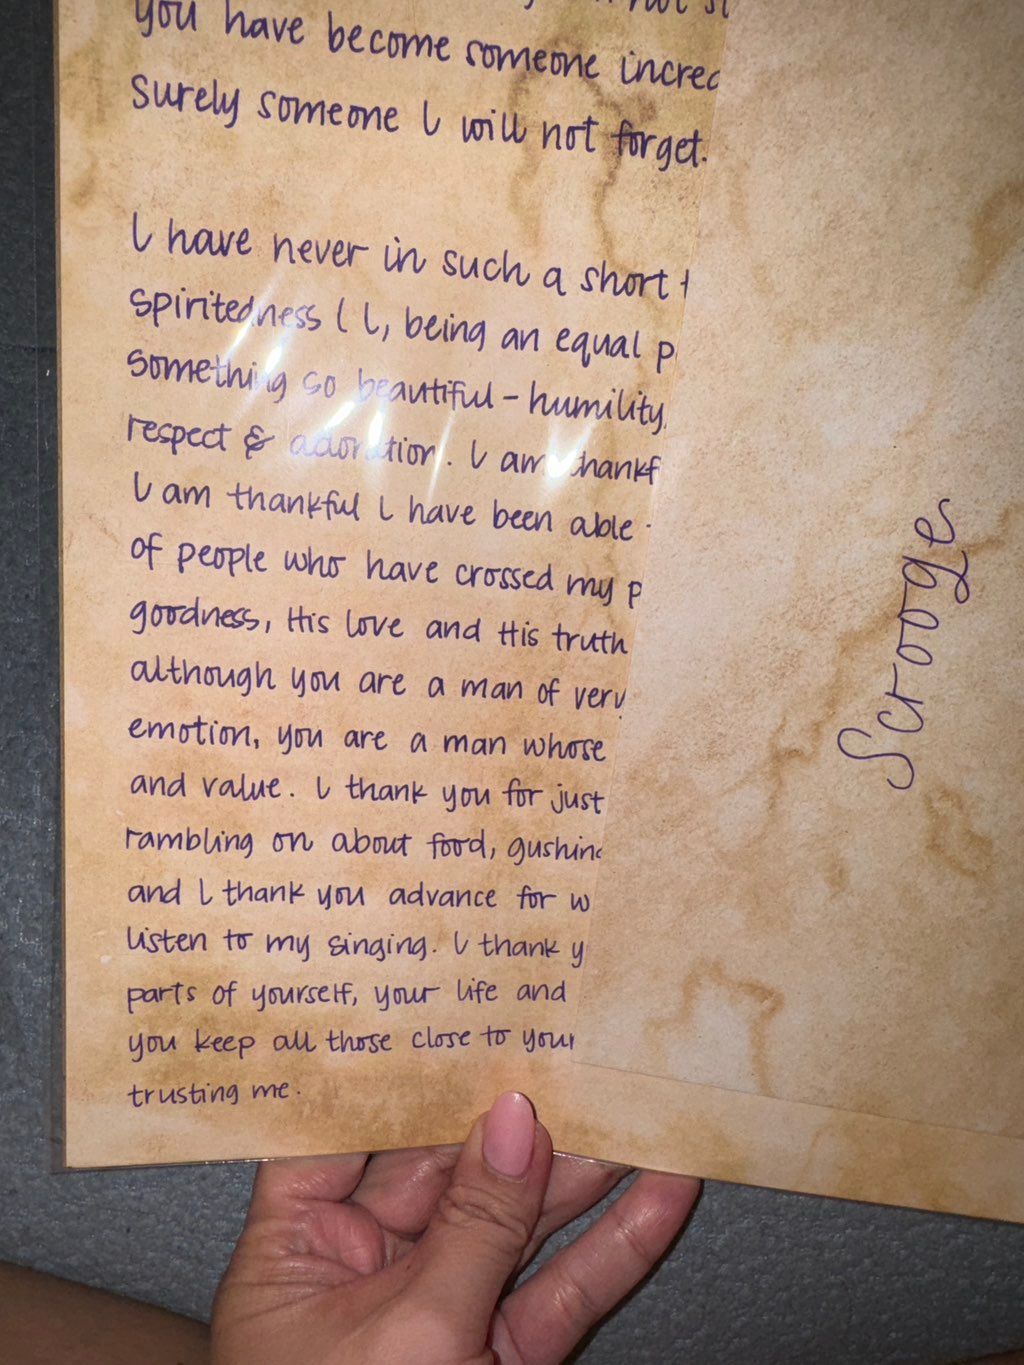 you have become someone
surely someone I will not forget.
I have never in such a short
spiritedness ( I, being an equal
something so beautiful - humility,
respect & adoration. I am
I am thankful I have been able
of people who have crossed my
goodness, His love and His truth
although you are a man of very
emotion, you are a man whose
and value. I thank you for just
rambling on about food,
and I thank you advance for
listen to my singing. I thank
parts of yourself, your life and
you keep all those close to your
trusting me.
Scrooge